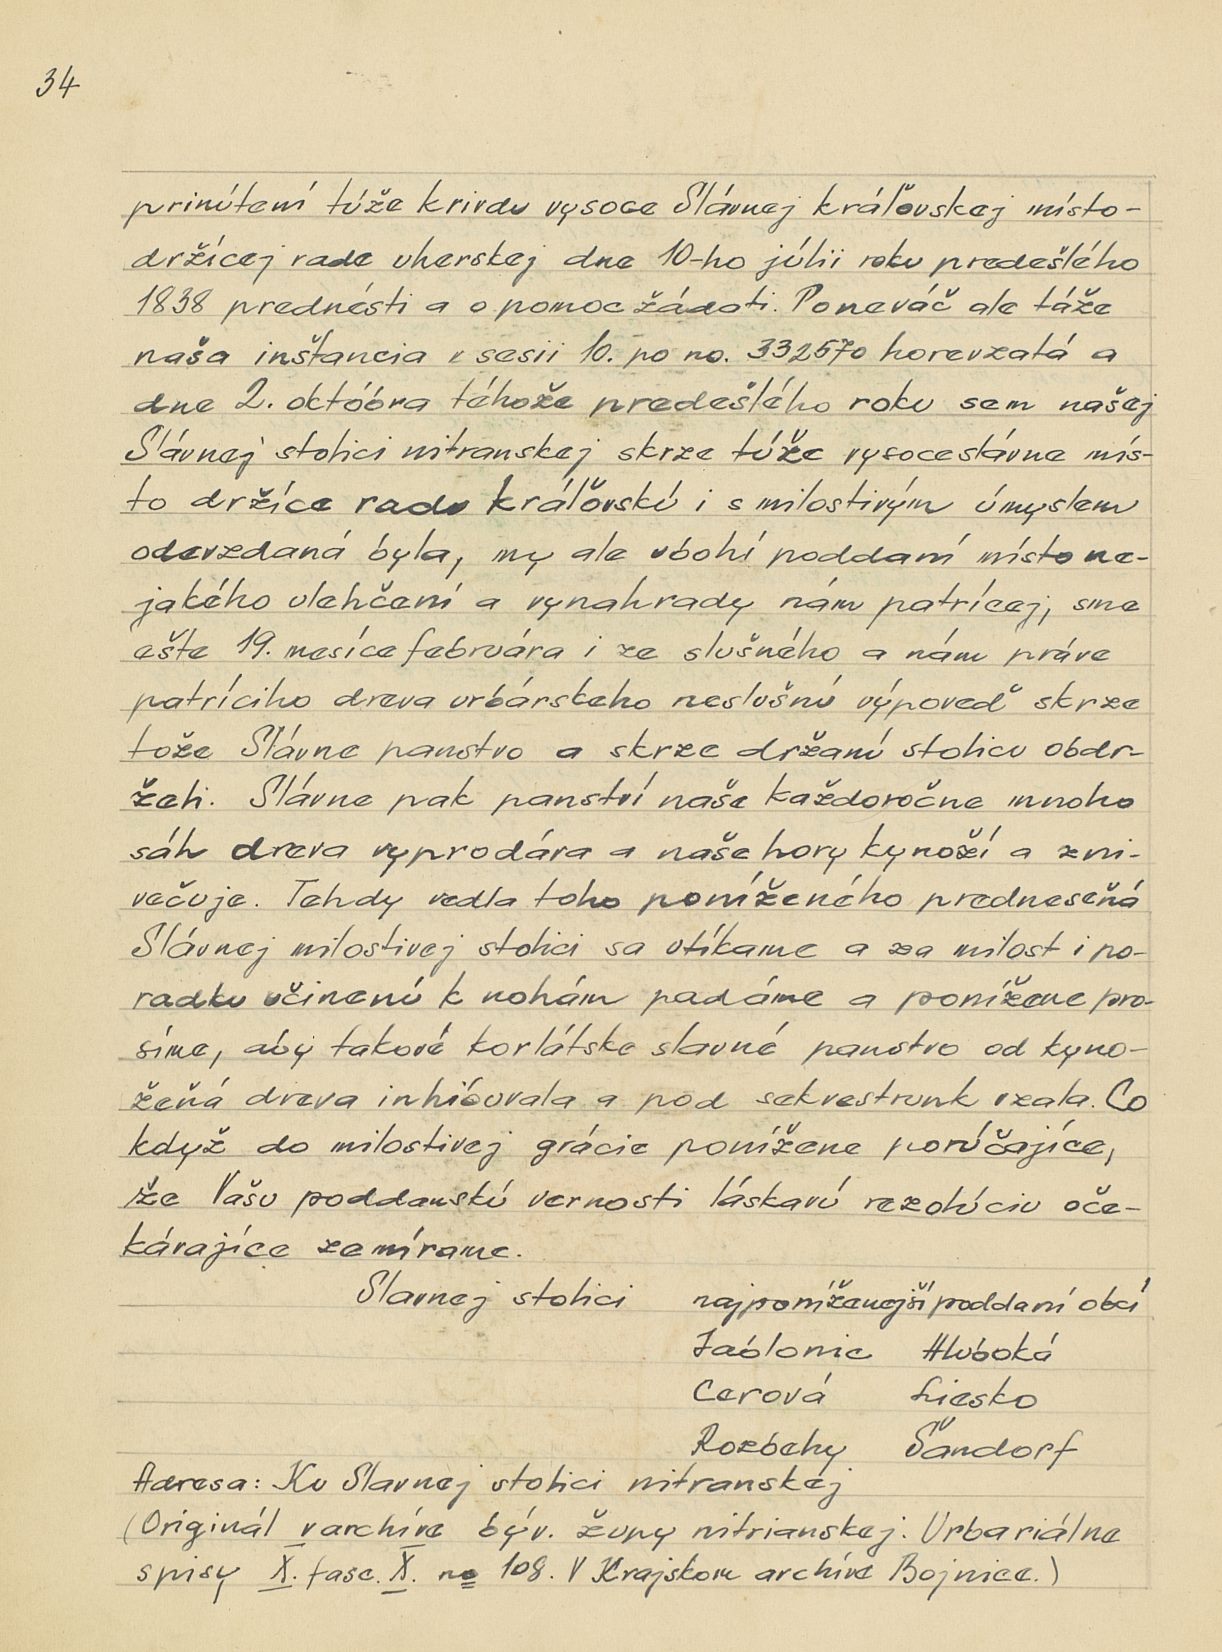 34
prinútení túže krivdu vysoce Slávnej kráľovskej místo-
držícej rade uherskej dne 10-ho júlii roku predešlého
1838 prednésti a o pomoc žádati. Poneváč ale táže
naša inštancia v sesii 10. po no. 332570 horevzatá a
dne 2. októbra téhože predešlého roku sem našej
Slávnej stolici nitranskej skrze túže vysoceslávne mís-
to držíce radu kráľovskú i s milostivým úmyslem
odevzdaná byla, my ale ubohí poddaní místo ne-
jakého ulehčení a vynahrady nám patrícej, sme
ešte 19. mesíce februára i ze slušného a nám práve
patrícího dreva urbárskeho neslušnú výpoveď skrze
tože Slávne panstvo a skrze držanú stolicu obdr-
želi. Slávne pak panství naše každoročne mnoho
sáh dreva vyprodáva a naše hory kynoží a zni-
večuje. Tehdy vedla toho poníženého predneseňá
Slávnej milostivej stolici sa utíkame a za milost i po-
radku učinenú k nohám padáme a ponížene pro-
síme, aby takové korlátske slavné panstvo od kyno-
žeňá dreva inhibuvala a pod sekvestrunk vzala. Co
když do milostivej grácie ponížene porúčajíce,
že Vašu poddanskú vernosti láskavú rezolúciu oče-
kávajíce zemírame.
Slavnej stolici najponíženejší poddaní obcí
Jablonic Hluboká
Cerová Liesko
Rozbehy Šándorf
Adresa: Ku Slavnej stolici nitranskej
(Originál v archíve býv. župy nitrianskej. Urbariálne
spisy X. fasc. X. no 108. V Krajskom archíve Bojnice.)